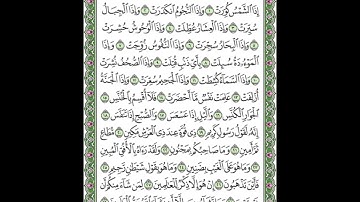 إِذَا الشَّمْسُ كُوِّرَتْ ۝١ وَإِذَا النُّجُومُ انكَدَرَتْ ۝٢ وَإِذَا الْجِبَالُ
سُيِّرَتْ ۝٣ وَإِذَا الْعِشَارُ عُطِّلَتْ ۝٤ وَإِذَا الْوُحُوشُ حُشِرَتْ
۝٥ وَإِذَا الْبِحَارُ سُجِّرَتْ ۝٦ وَإِذَا النُّفُوسُ زُوِّجَتْ ۝٧ وَإِذَا
الْمَوْءُودَةُ سُئِلَتْ ۝٨ بِأَيِّ ذَنبٍ قُتِلَتْ ۝٩ وَإِذَا الصُّحُفُ نُشِرَتْ
۝١٠ وَإِذَا السَّمَاءُ كُشِطَتْ ۝١١ وَإِذَا الْجَحِيمُ سُعِّرَتْ ۝١٢ وَإِذَا الْجَنَّةُ
أُزْلِفَتْ ۝١٣ عَلِمَتْ نَفْسٌ مَّا أَحْضَرَتْ ۝١٤ فَلَا أُقْسِمُ بِالْخُنَّسِ ۝١٥
الْجَوَارِ الْكُنَّسِ ۝١٦ وَاللَّيْلِ إِذَا عَسْعَسَ ۝١٧ وَالصُّبْحِ إِذَا تَنَفَّسَ ۝١٨
إِنَّهُ لَقَوْلُ رَسُولٍ كَرِيمٍ ۝١٩ ذِي قُوَّةٍ عِندَ ذِي الْعَرْشِ مَكِينٍ ۝٢٠ مُّطَاعٍ
ثَمَّ أَمِينٍ ۝٢١ وَمَا صَاحِبُكُم بِمَجْنُونٍ ۝٢٢ وَلَقَدْ رَآهُ بِالْأُفُقِ الْمُبِينِ
۝٢٣ وَمَا هُوَ عَلَى الْغَيْبِ بِضَنِينٍ ۝٢٤ وَمَا هُوَ بِقَوْلِ شَيْطَانٍ رَّجِيمٍ ۝٢٥
فَأَيْنَ تَذْهَبُونَ ۝٢٦ إِنْ هُوَ إِلَّا ذِكْرٌ لِّلْعَالَمِينَ ۝٢٧ لِمَن شَاءَ مِنكُمْ أَن